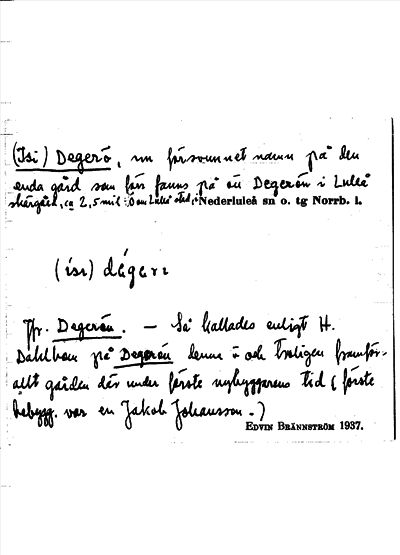 (Isi) Degerö, nu försvunnet namn på den
enda gård som förr fanns på ön Degerön i Luleå
skärgård, ca 2,5 mil O om Luleå stad, i Nederluleå sn o. tg Norrb. l.
(isi) dégerı
Jfr. Degerön. — Så kallades enligt H.
Dahlbom på Degerön denna ö och troligen framför-
allt gården där under förste nybyggarens tid (förste
bebygg. var en Jakob Johansson.)
EDVIN BRÄNNSTRÖM 1937.